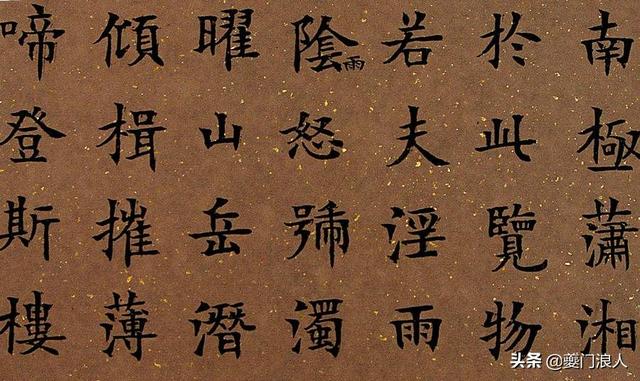 南極瀟湘
於此覽物
若夫淫雨
陰雨怒號濁
曜山岳潛
傾楫摧薄
啼登斯樓
头条 @夔门浪人